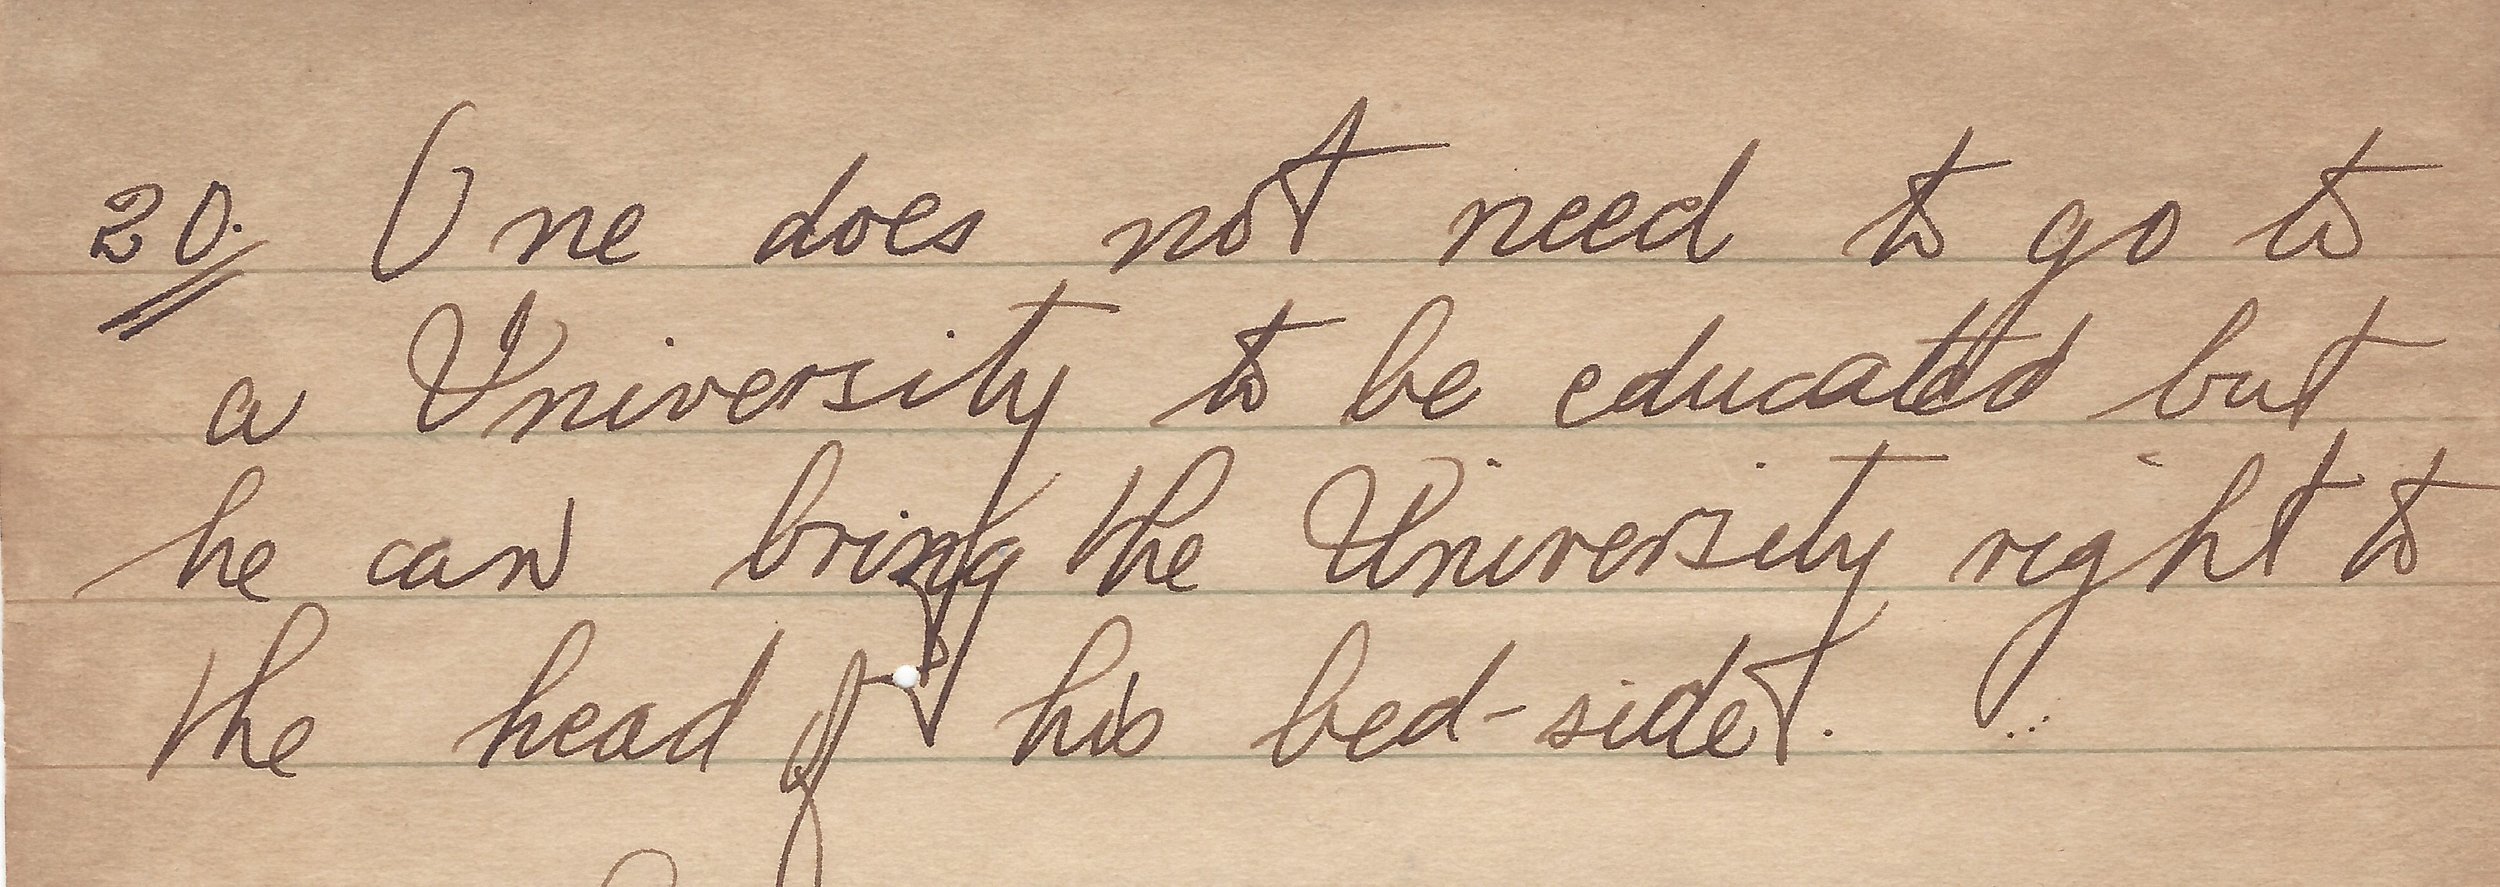 20. One does not need to go to
a University to be educated but
he can bring the University right to
the head of his bed-side.